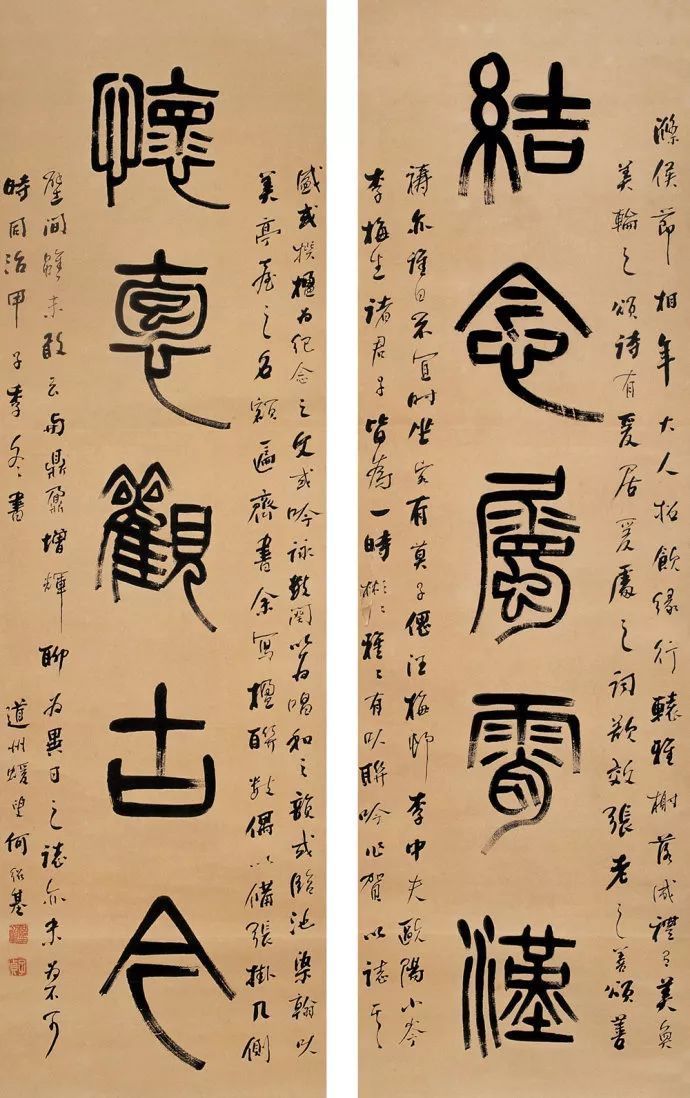 結念屬霄漢
懷袌觀古今
滌侯節相年大人招飲緣行轅雅榭落成禮有美奐
美輪之頌詩有爰居爰處之詞欲效張老之善頌善
禱亦謹不宣時坐客有莫子偲汪梅邨李中夫歐陽小岑
李梅生諸君子皆為一時彬彬雅雅有以聯吟作賀以誌其
盛或撰楹為紀念之文或吟詠數闋以為唱和之韻或臨池染翰以
美亭臺之名額匾齋書余寫楹聯數偶以備張掛几側
壁間雖未敢云與鼎鼐增輝聊為異日之誌亦未為不可
時同治甲子季冬書
道州蝯叟何紹基